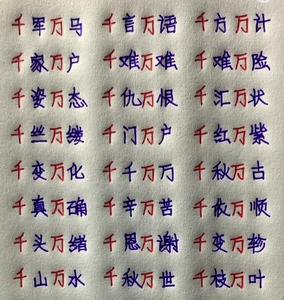 千军万马 千言万语 千方万计
千家万户 千难万难 千难万险
千姿万态 千仇万恨 千汇万状
千丝万缕 千门万户 千红万紫
千变万化 千千万万 千秋万古
千真万确 千辛万苦 千依万顺
千头万绪 千恩万谢 千变万轸
千山万水 千秋万世 千枝万叶